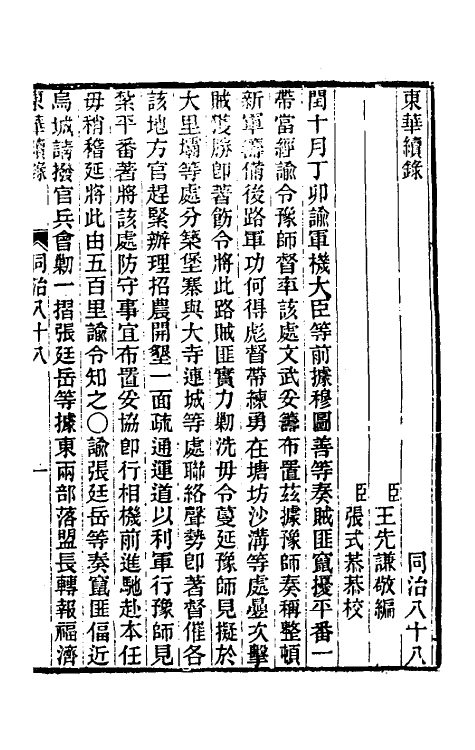 東華續錄
同治八十八
臣王先謙敬編
臣張式恭恭校
閏十月丁卯諭軍機大臣等前據穆圖善等奏賊匪竄擾平番一
帶當經諭令豫師督率該處文武妥籌布置茲據豫師奏稱整頓
新軍籌備後路軍功何得彪督帶練勇在塘坊沙溝等處疊次擊
賊獲勝卽著飭令將此路賊匪實力勦洗毋令蔓延豫師見擬於
大里壩等處分築堡寨與大寺連城等處聯絡聲勢卽著督催各
該地方官趕緊辦理招農開墾一面疏通運道以利軍行豫師見
紮平番著將該處防守事宜布置妥協卽行相機前進馳赴本任
毋稍稽延將此由五百里諭令知之〇諭張廷岳等奏竄匪偪近
烏城請撥官兵會勦一摺張廷岳等據東兩部落盟長轉報福濟
東華續錄
同治八十八
一